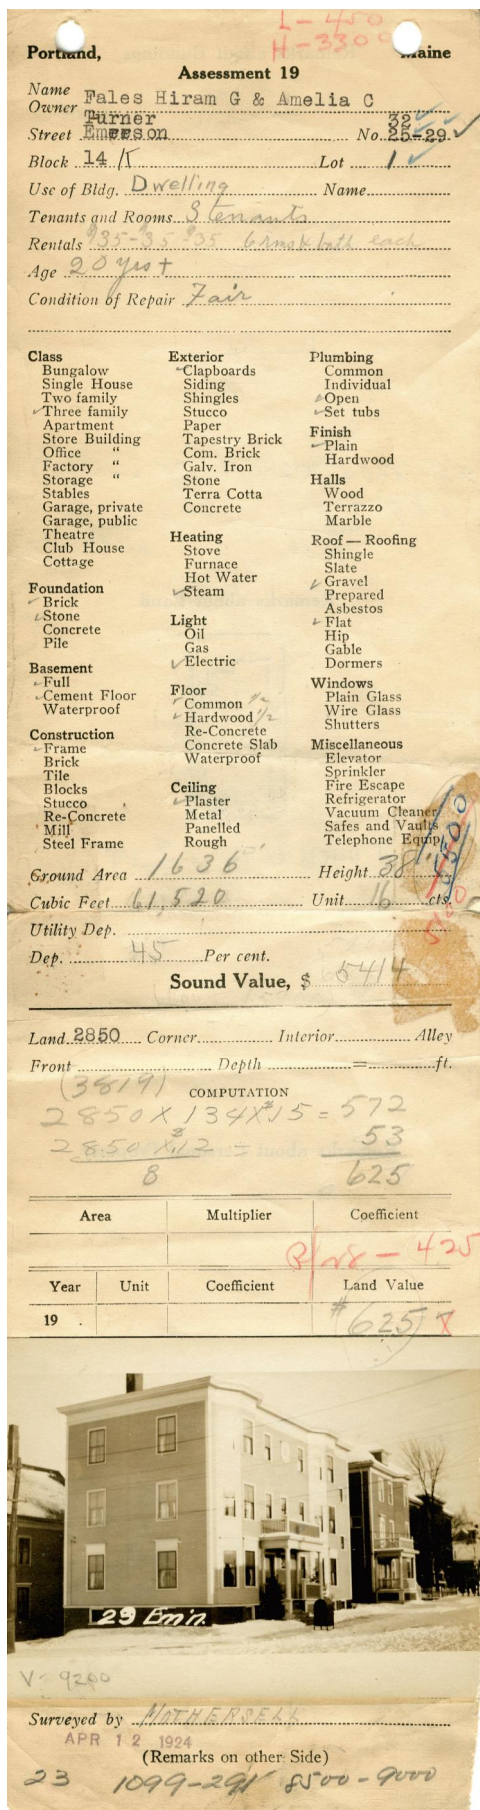 L - 450
H - 3300
Portland, Maine
Assessment 19
Name
Owner Fales Hiram G & Amelia C
Turner 32
Street Emerson No. 25-29
Block 14 K Lot 1
Use of Bldg. Dwelling Name
Tenants and Rooms 3 tenants
Rentals $35-35 $35 6 rms & bath each
Age 20 yrs +
Condition of Repair Fair
Class
Bungalow
Single House
Two family
✓Three family
Apartment
Store Building
Office "
Factory "
Storage "
Stables
Garage, private
Garage, public
Theatre
Club House
Cottage
Foundation
✓Brick
✓Stone
Concrete
Pile
Basement
✓Full
✓Cement Floor
Waterproof
Construction
✓Frame
Brick
Tile
Blocks
Stucco
Re-Concrete
Mill
Steel Frame
Exterior
✓Clapboards
Siding
Shingles
Stucco
Paper
Tapestry Brick
Com. Brick
Galv. Iron
Stone
Terra Cotta
Concrete
Heating
Stove
Furnace
Hot Water
✓Steam
Light
Oil
Gas
✓Electric
Floor
✓Common 1/2
✓Hardwood 1/2
Re-Concrete
Concrete Slab
Waterproof
Ceiling
✓Plaster
Metal
Panelled
Rough
Plumbing
Common
Individual
✓Open
✓Set tubs
Finish
✓Plain
Hardwood
Halls
Wood
Terrazzo
Marble
Roof — Roofing
Shingle
Slate
✓Gravel
Prepared
Asbestos
✓Flat
Hip
Gable
Dormers
Windows
Plain Glass
Wire Glass
Shutters
Miscellaneous
Elevator
Sprinkler
Fire Escape
Refrigerator
Vacuum Cleaner
Safes and Vaults
Telephone Equip.
Ground Area 1636 Height 38
Cubic Feet 61,520 Unit 16 cts.
Utility Dep.
Dep. 45 Per cent.
Sound Value, $ 5414
Land 2850 Corner Interior Alley
Front Depth = ft.
(3819)
COMPUTATION
2850 X 134 X 15 = 572
2850 X 12 53
8 625
Area Multiplier Coefficient
- 425
Year Unit Coefficient Land Value
19 625
29 Em'n.
V - 9200
Surveyed by MOTHERSELL
APR 12 1924
(Remarks on other Side)
23 1099-291 8500 - 9000